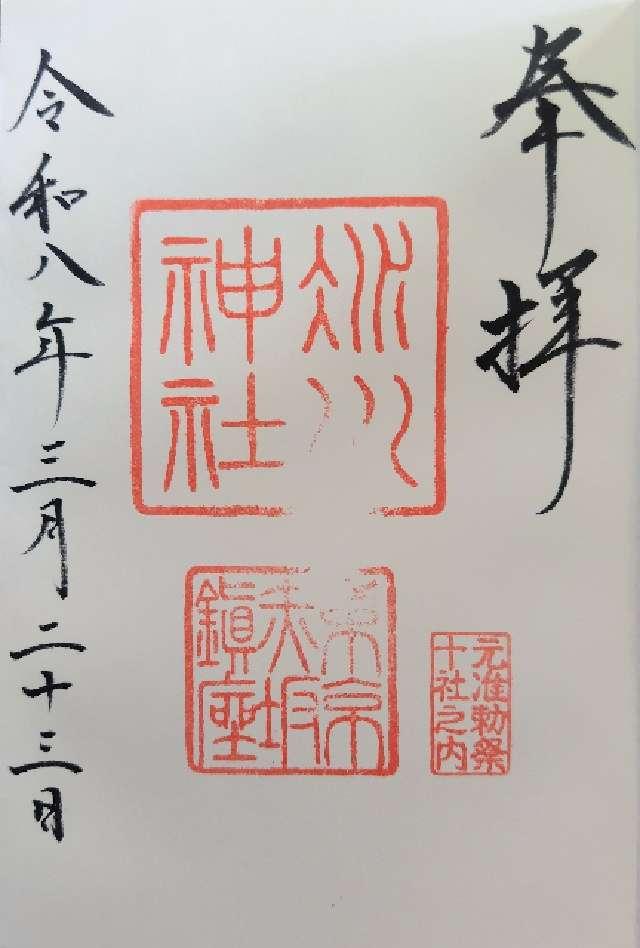 奉拝
氷川
神社
東京
赤坂
鎮座
元准勅祭
十社之内
令和八年三月二十三日